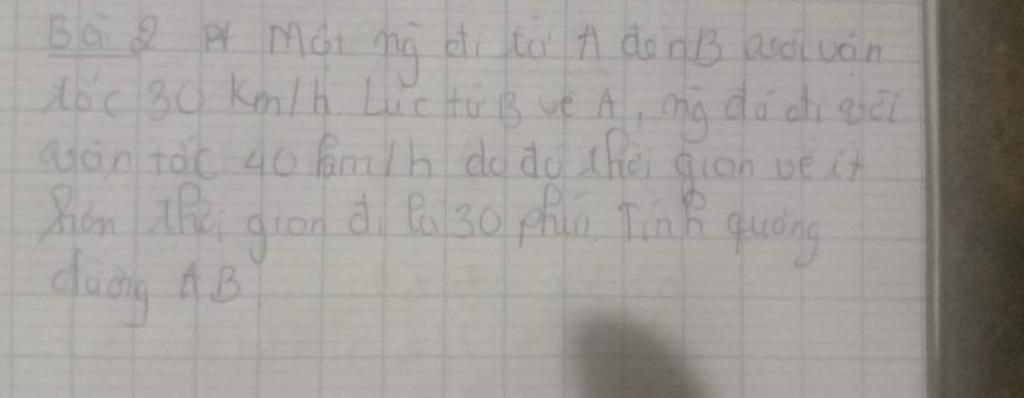 Bài 2 Một ng đi từ A đến B với vận
tốc 30 km/h Lúc từ B về A, ng đó đi với
vận tốc 40 km/h do đó thời gian về ít
hơn thời gian đi là 30 phút. Tính quãng
đường AB